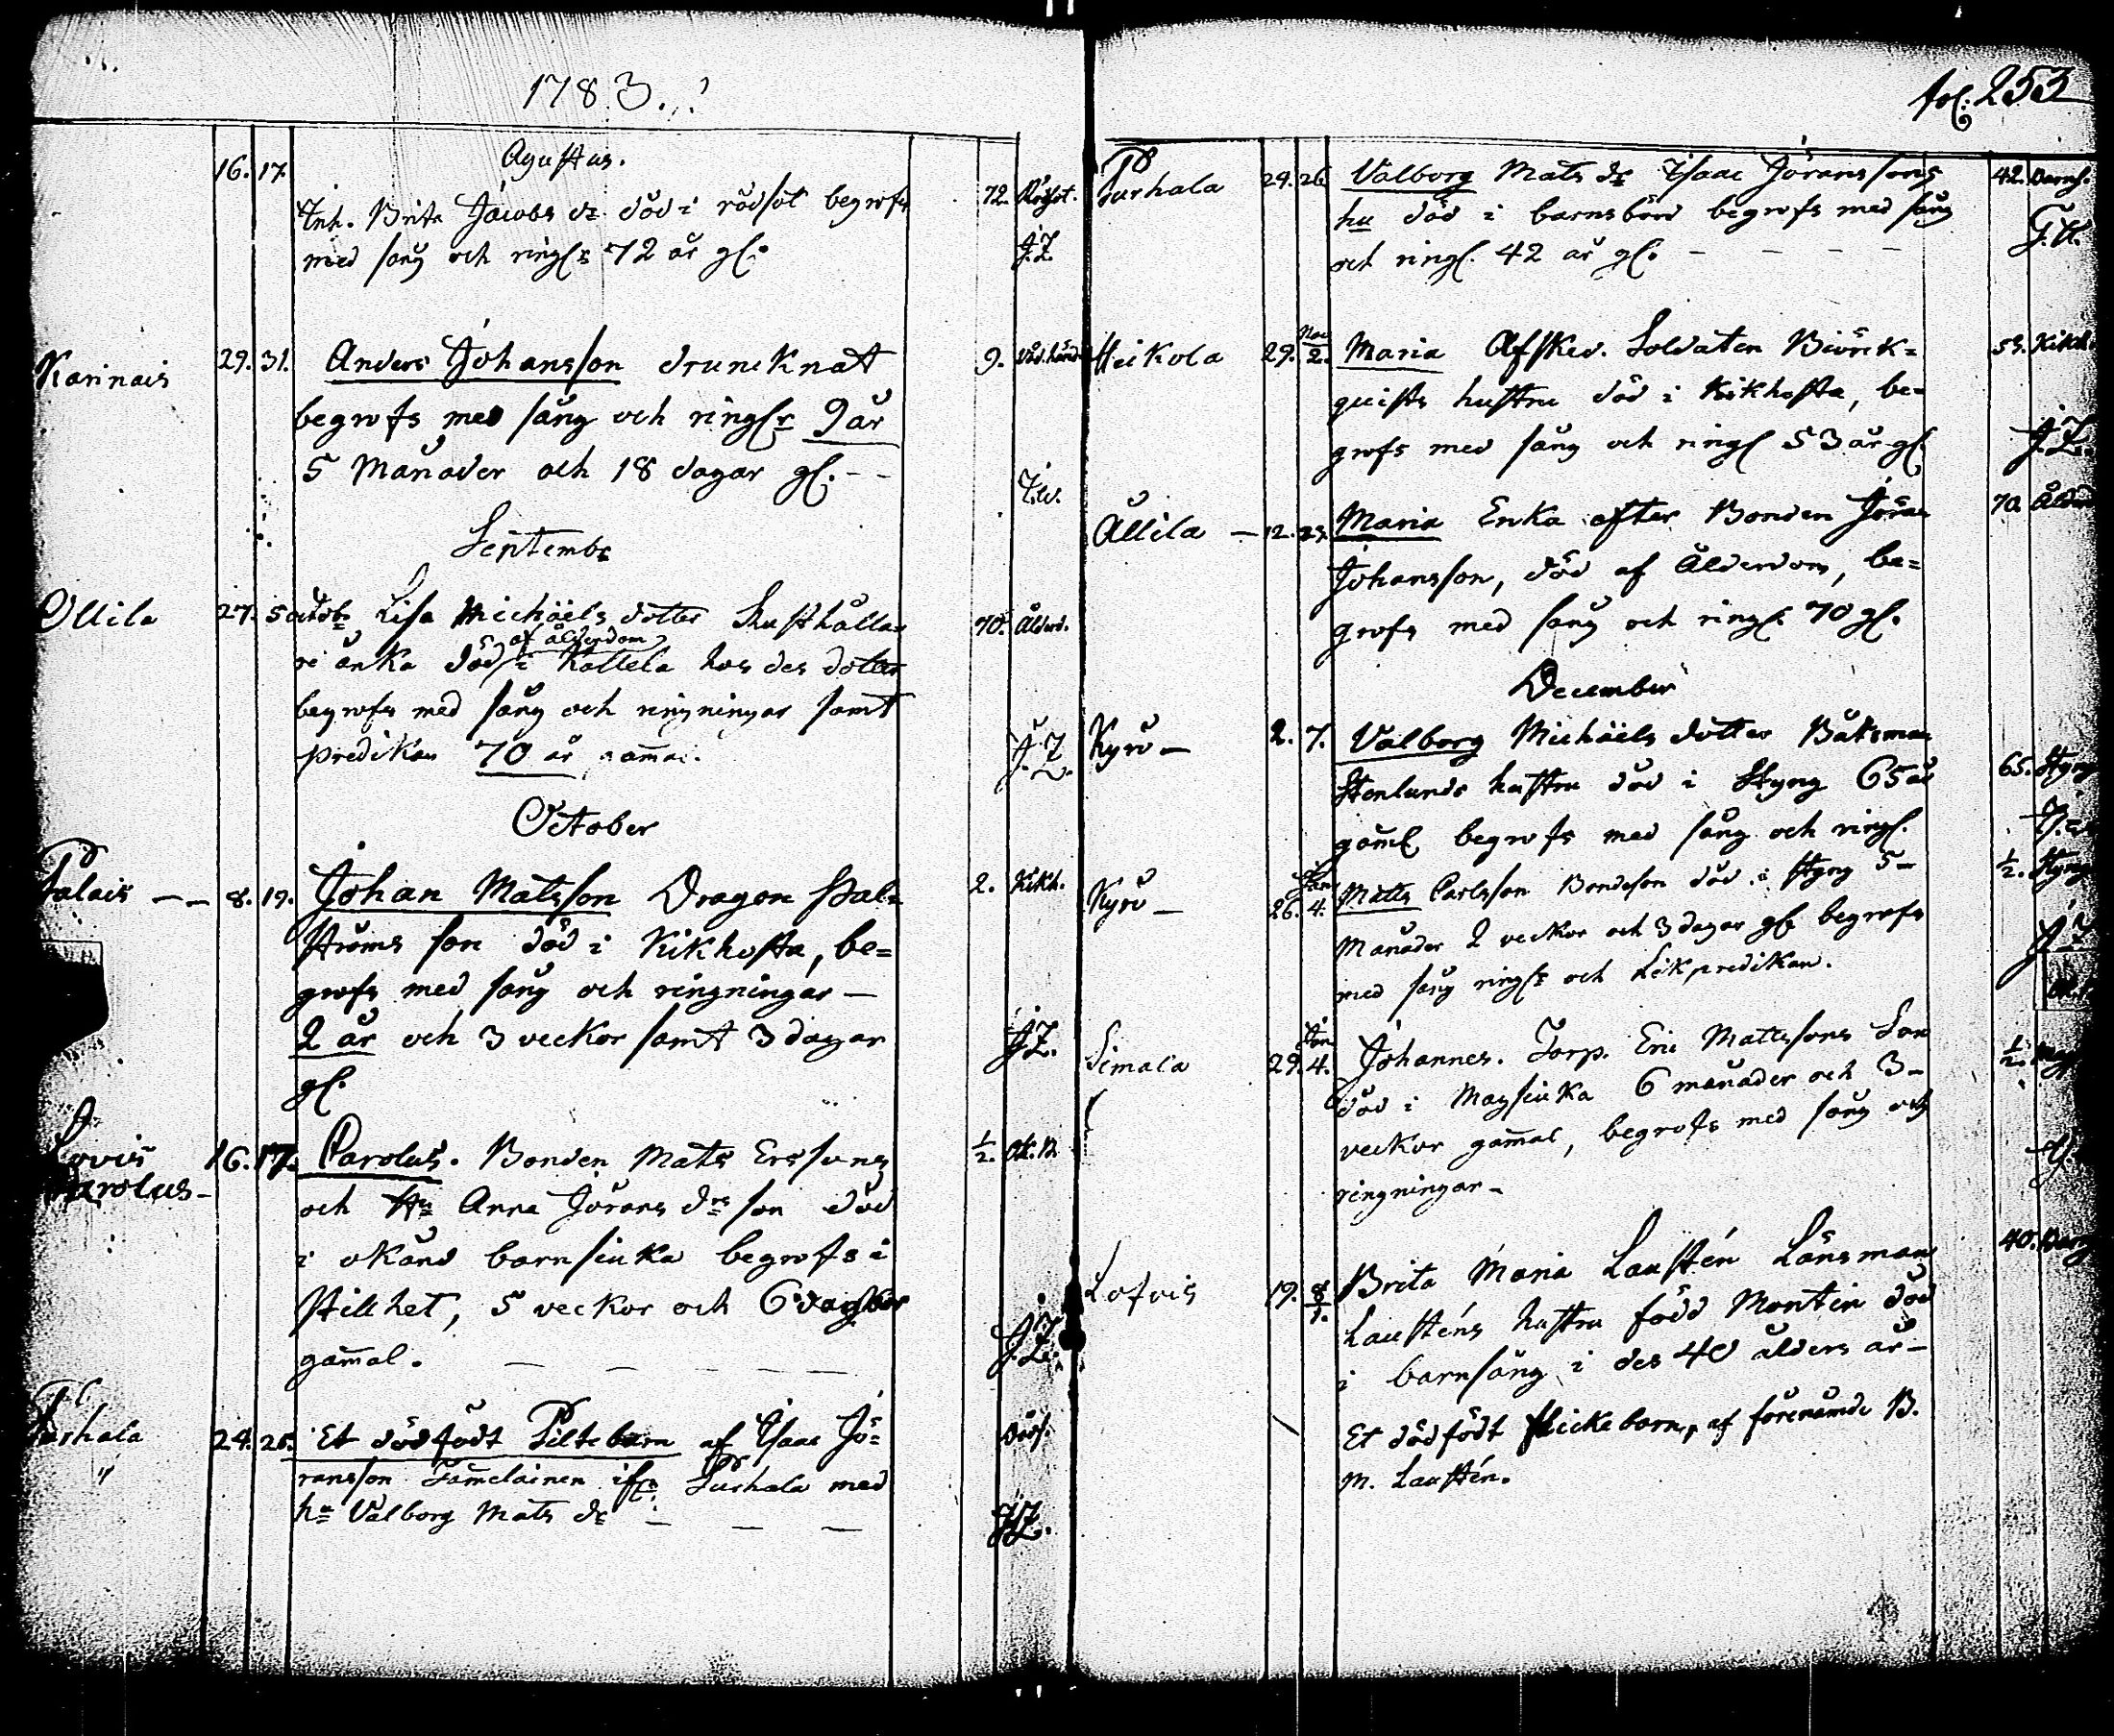 1783.
Agustus.
16. 17.
Inh. Brita Jacobs dr död i rödsot begrofs 72. Rödsot.
med sång och ringr 72 år gl. J.Z.
Karinais 29. 31. Anders Johansson druncknat 9. Våd.händ.
begrofs med sång och ringr 9 år
5 Månader och 18 dagar gl. - -
Septembr
Ollila 27. 5 octobr Lisa Michaëls dotter Rusthålla= 70. Ålderd.
re änka död af ålderdom i Kallela hos des dotter
begrofs med sång och ringningar samt
predikan 70 år gamal. J.Z.
October
Palais -- 8. 19. Johan Matsson Dragon Pal= 2. Kikh.
ströms son död i Kikhosta, be=
grofs med sång och ringningar -
2 år och 3 veckor samt 3 dagar J.Z.
gl.
Lovis 16. 17. Carolus. Bonden Mats Erssons 1/2. Ok. B.
Carolus - och Hu Anna Jörans drs son död
i okänd barnsiuka begrofs i
stillhet, 5 veckor och 6 dagar
gamal. J.Z.
Purhala 24. 25. Et dödfödt Piltebarn af Isaac Jö= Dödf.
" ransson Jamelainen ifr. Purhala med
hu Valborg Mats dr J.Z.
fol. 253
Purhala 24. 26. Valborg Mats dr Isaac Jöranssons 42. Barnsb.
hu död i barnsbörd begrofs med sång
och ringr. 42 år gl. -
Heikola 29. Nov 2. Maria Afsked. Soldaten Biörk= 53. Kikh.
quists hustru död i Kikhosta, be=
grofs med sång och ringr 53 år gl. J.Z.
Ållila - 12. 23. Maria Enka efter Bonden Jöran 70. Ålderd
Johansson, död af Ålderdom, be=
grofs med sång och ringr. 70 gl.
December
Kyrö - 2. 7. Valborg Michaëls dotter Båtsman
Stenlunds hustru död i Styng 65 år 65. Styng
gamel begrofs med sång och ringr.
Kyrö - 26. Jan 4. Matts Carlsson Bondeson död i Styng 5 - 1/2. Styng
Månader 2 veckor och 3 dagar gl begrofs
med sång ringr och Likpredikan. J.Z
Simala 29. Jan 4. Johannes. Torp. Eric Mattssons Son 1/2.
död i Magsiuka 6 månader och 3 -
veckor gamal, begrofs med sång och
ringningar -
Lofvis 19. 8/1. Brita Maria Lausten Länsman 40. Barns
Lausténs hustru född Montin död
i barnsäng i des 40 ålders år -
Et dödfödt flickebarn, af förenämde B.
M. Laustén.